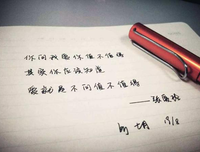 你问我爱你值不值得
其实你应该知道
爱就是不问值不值得
——张爱玲